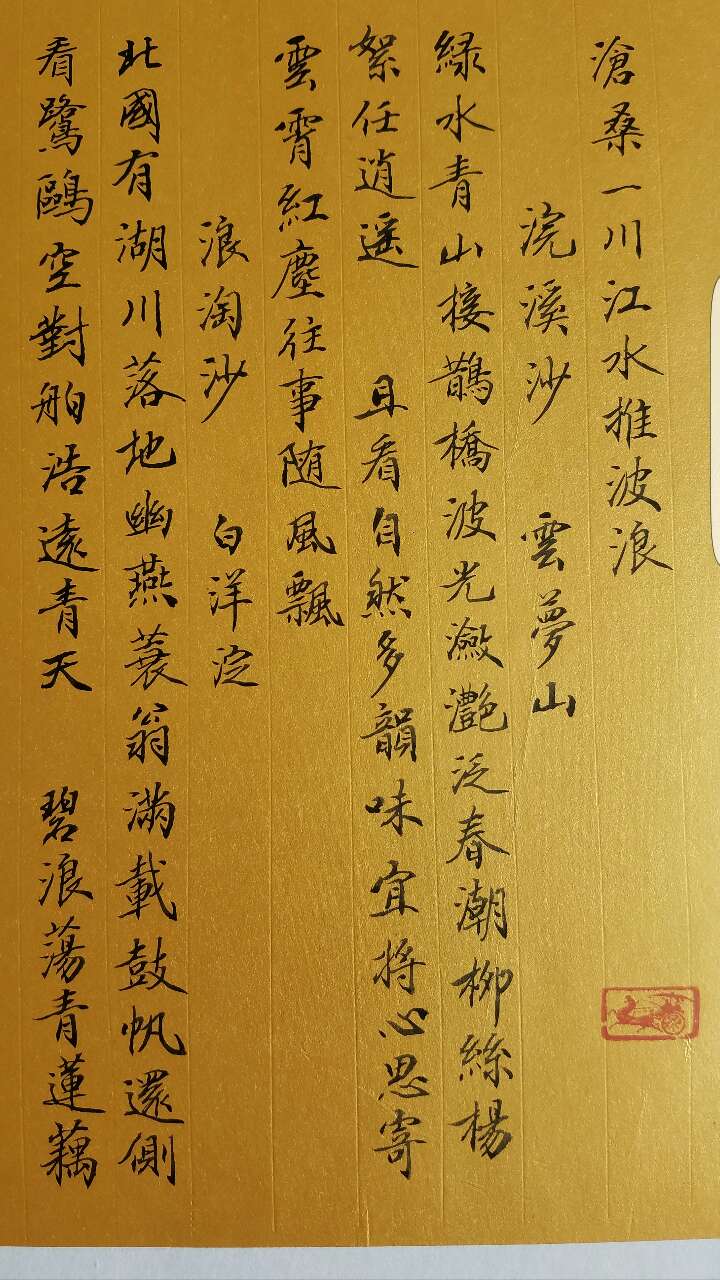 滄桑一川江水推波浪
浣溪沙 雲夢山
綠水青山接鵲橋波光瀲灩泛春潮柳絲楊
絮任逍遥 且看自然多韻味宜将心思寄
雲霄紅塵往事随風飄
浪淘沙 白洋淀
北國有湖川落地幽燕蓑翁滿載鼓帆還側
看鷺鷗空對舶浩遠青天 碧浪蕩青蓮藕